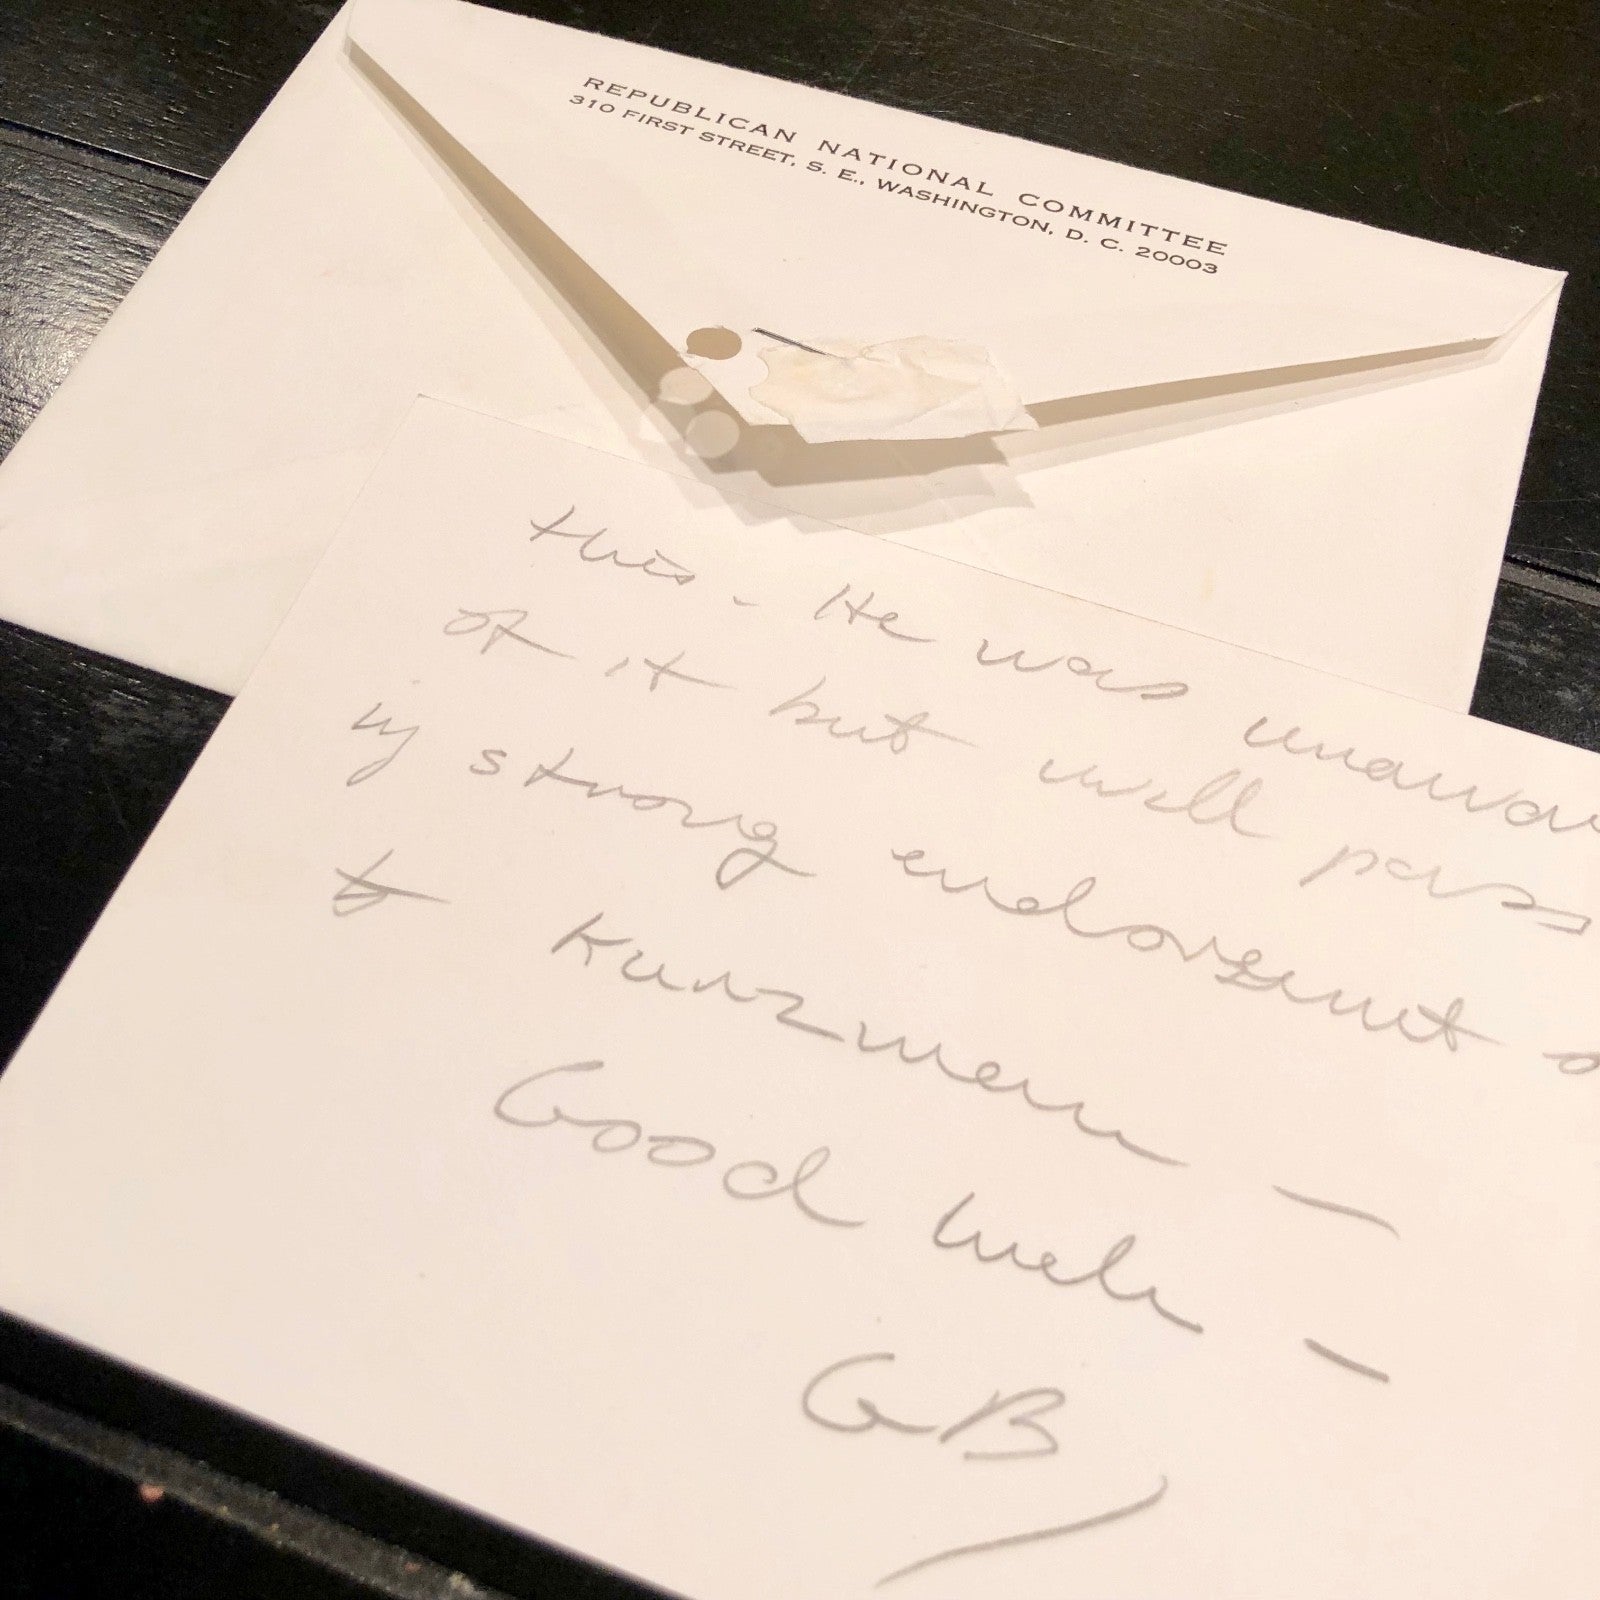 REPUBLICAN NATIONAL COMMITTEE
310 FIRST STREET, S. E., WASHINGTON, D. C. 20003
this - He was unawar
of it but will pass
my strong endorsement o
to Kurzman —
Good luck -
GB